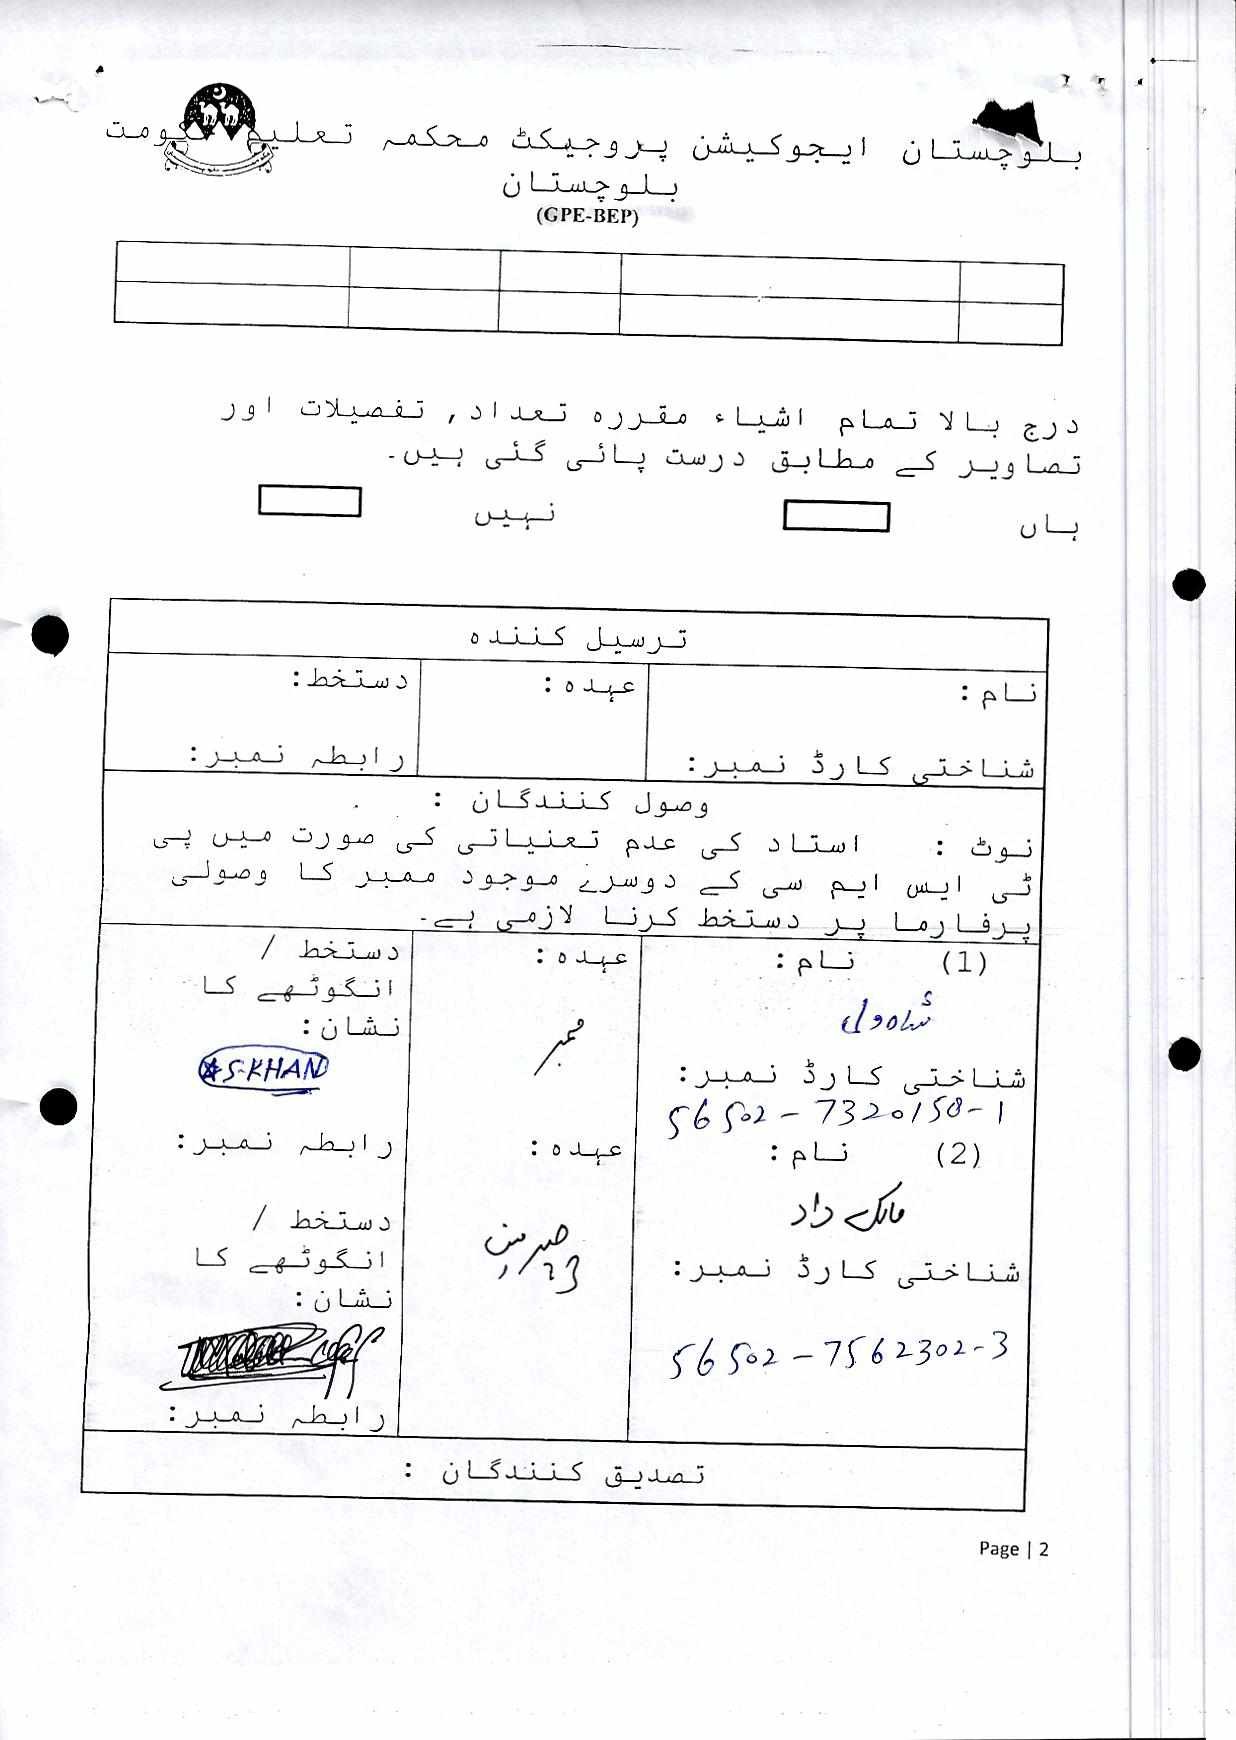 بلوچستان ایجوکیشن پروجیکٹ محکمہ تعلیم حکومت
بلوچستان
(GPE-BEP)
درج بالا تمام اشیاء مقررہ تعداد, تفصیلات اور
تصاویر کے مطابق درست پائی گئی ہیں۔
ہاں نہیں
ترسیل کنندہ
نام: عہدہ: دستخط:
شناختی کارڈ نمبر: رابطہ نمبر:
وصول کنندگان :
نوٹ : استاد کی عدم تعنیاتی کی صورت میں پی
ٹی ایس ایم سی کے دوسرے موجود ممبر کا وصولی
پرفارما پر دستخط کرنا لازمی ہے۔
(1) نام: عہدہ: دستخط /
انگوٹھے کا
نشان:
شاہ دل ممبر S-KHAN
شناختی کارڈ نمبر:
56502-7320158-1
(2) نام: عہدہ: رابطہ نمبر:
مالک داد
دستخط /
انگوٹھے کا
نشان:
شناختی کارڈ نمبر:
56502-7562302-3
رابطہ نمبر:
تصدیق کنندگان :
Page | 2